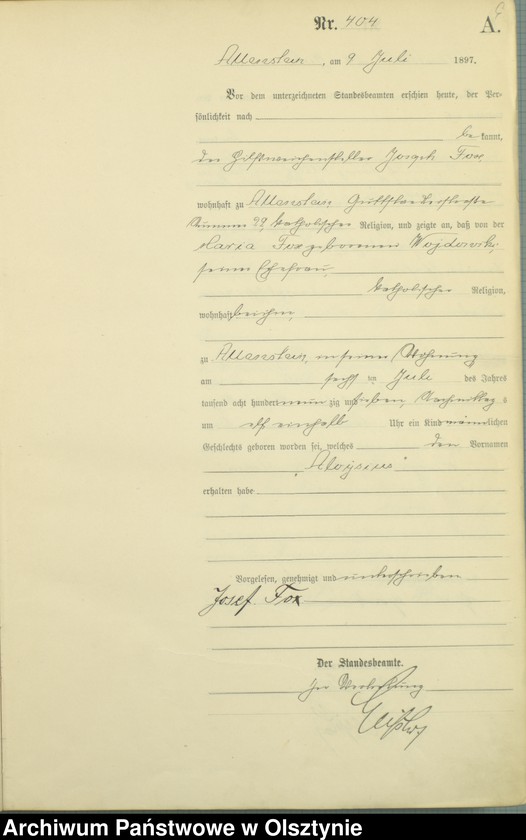 Nr. 404
A.
Allenstein, am 9 Juli 1897.
Vor dem unterzeichneten Standesbeamten erschien heute, der Per-
sönlichkeit nach
be kannt,
der Hilfsweichensteller Joseph Fox,
wohnhaft zu Allenstein, Guttstaedterstraße
Nummer 29, katholischer Religion, und zeigte an, daß von der
Maria Fox geborenen Wojdowski,
seiner Ehefrau,
katholischer Religion,
wohnhaft bei ihm,
zu Allenstein, in seiner Wohnung
am sechs ten Juli des Jahres
tausend acht hundert neun zig und sieben, Nachmittags
um elf einhalb Uhr ein Kind männlichen
Geschlechts geboren worden sei, welches den Vornamen
„Aloysius“
erhalten habe
Vorgelesen, genehmigt und unterschrieben
Josef Fox
Der Standesbeamte.
In Vertretung
Archiwum Państwowe w Olsztynie